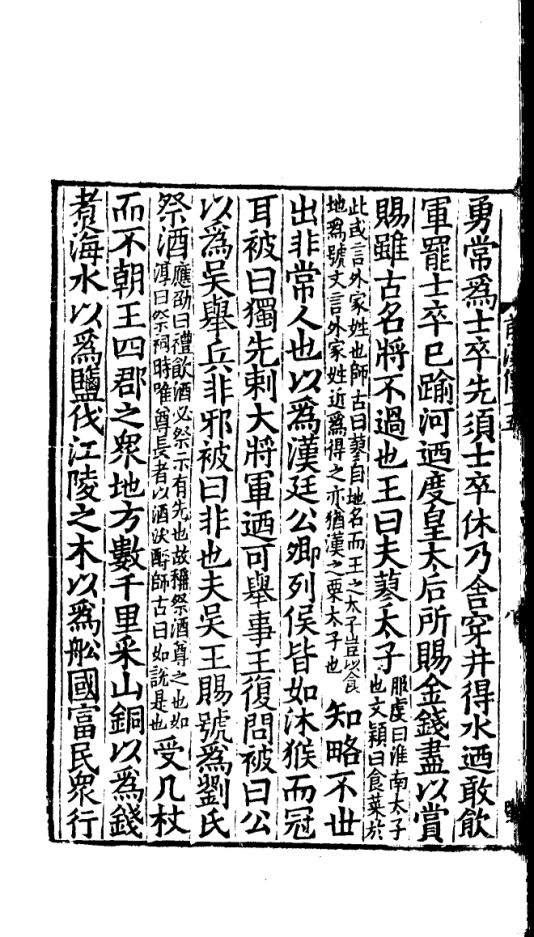 勇常爲士卒先須士卒休乃舍穿井得水迺敢飲
軍罷士卒已踰河迺度皇太后所賜金錢盡以賞
賜雖古名將不過也王曰夫蓼太子服虔曰淮南太子也文穎曰食菜於
此或言外家姓也師古曰蓼自地名而王之太子豈以食地爲號文言外家姓近爲得之亦猶漢之栗太子也知略不世
出非常人也以爲漢廷公卿列侯皆如沐猴而冠
耳被曰獨先刺大將軍迺可舉事王復問被曰公
以爲吳舉兵非邪被曰非也夫吳王賜號爲劉氏
祭酒應劭曰禮飲酒必祭示有先也故稱祭酒尊之也如淳曰祭祠時唯尊長者以酒沃酹師古曰如說是也受几杖
而不朝王四郡之衆地方數千里采山銅以爲錢
煑海水以爲鹽伐江陵之木以爲舩國富民衆行